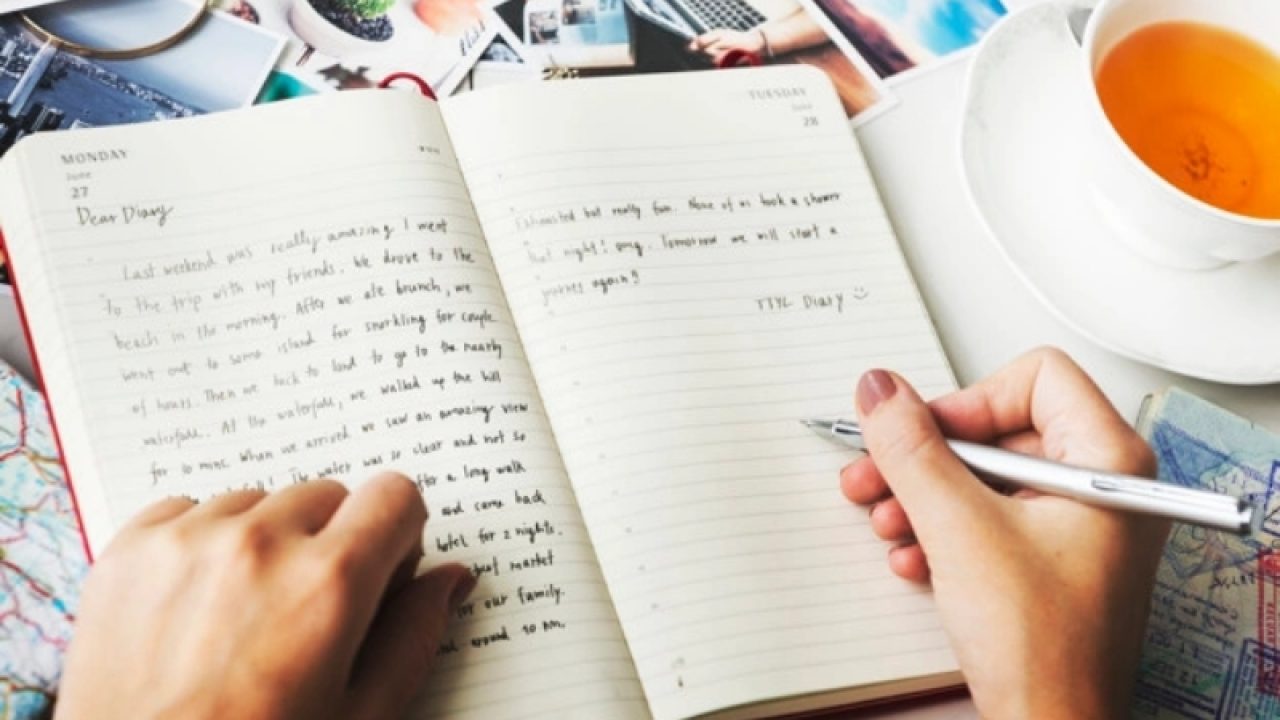 MONDAY
June
27
Dear Diary
Last weekend was really amazing I went
to the trip with my friends. We drove to the
beach in the morning. After we ate brunch, we
went out to some island for snorkling for couple
of hours. Then we back to land to go to the nearby
waterfall. At the waterfall, we walked up the hill
for 10 mins. When we arrived we saw an amazing view
The water was so clear and not so
after a long walk
and came back
hotel for 2 nights.
market
for our family.
around 10 AM.
TUESDAY
June
28
Exhausted but really fun. None of us took a shower
that night! omg. Tomorrow we will start a
journey again!
TTYL Diary